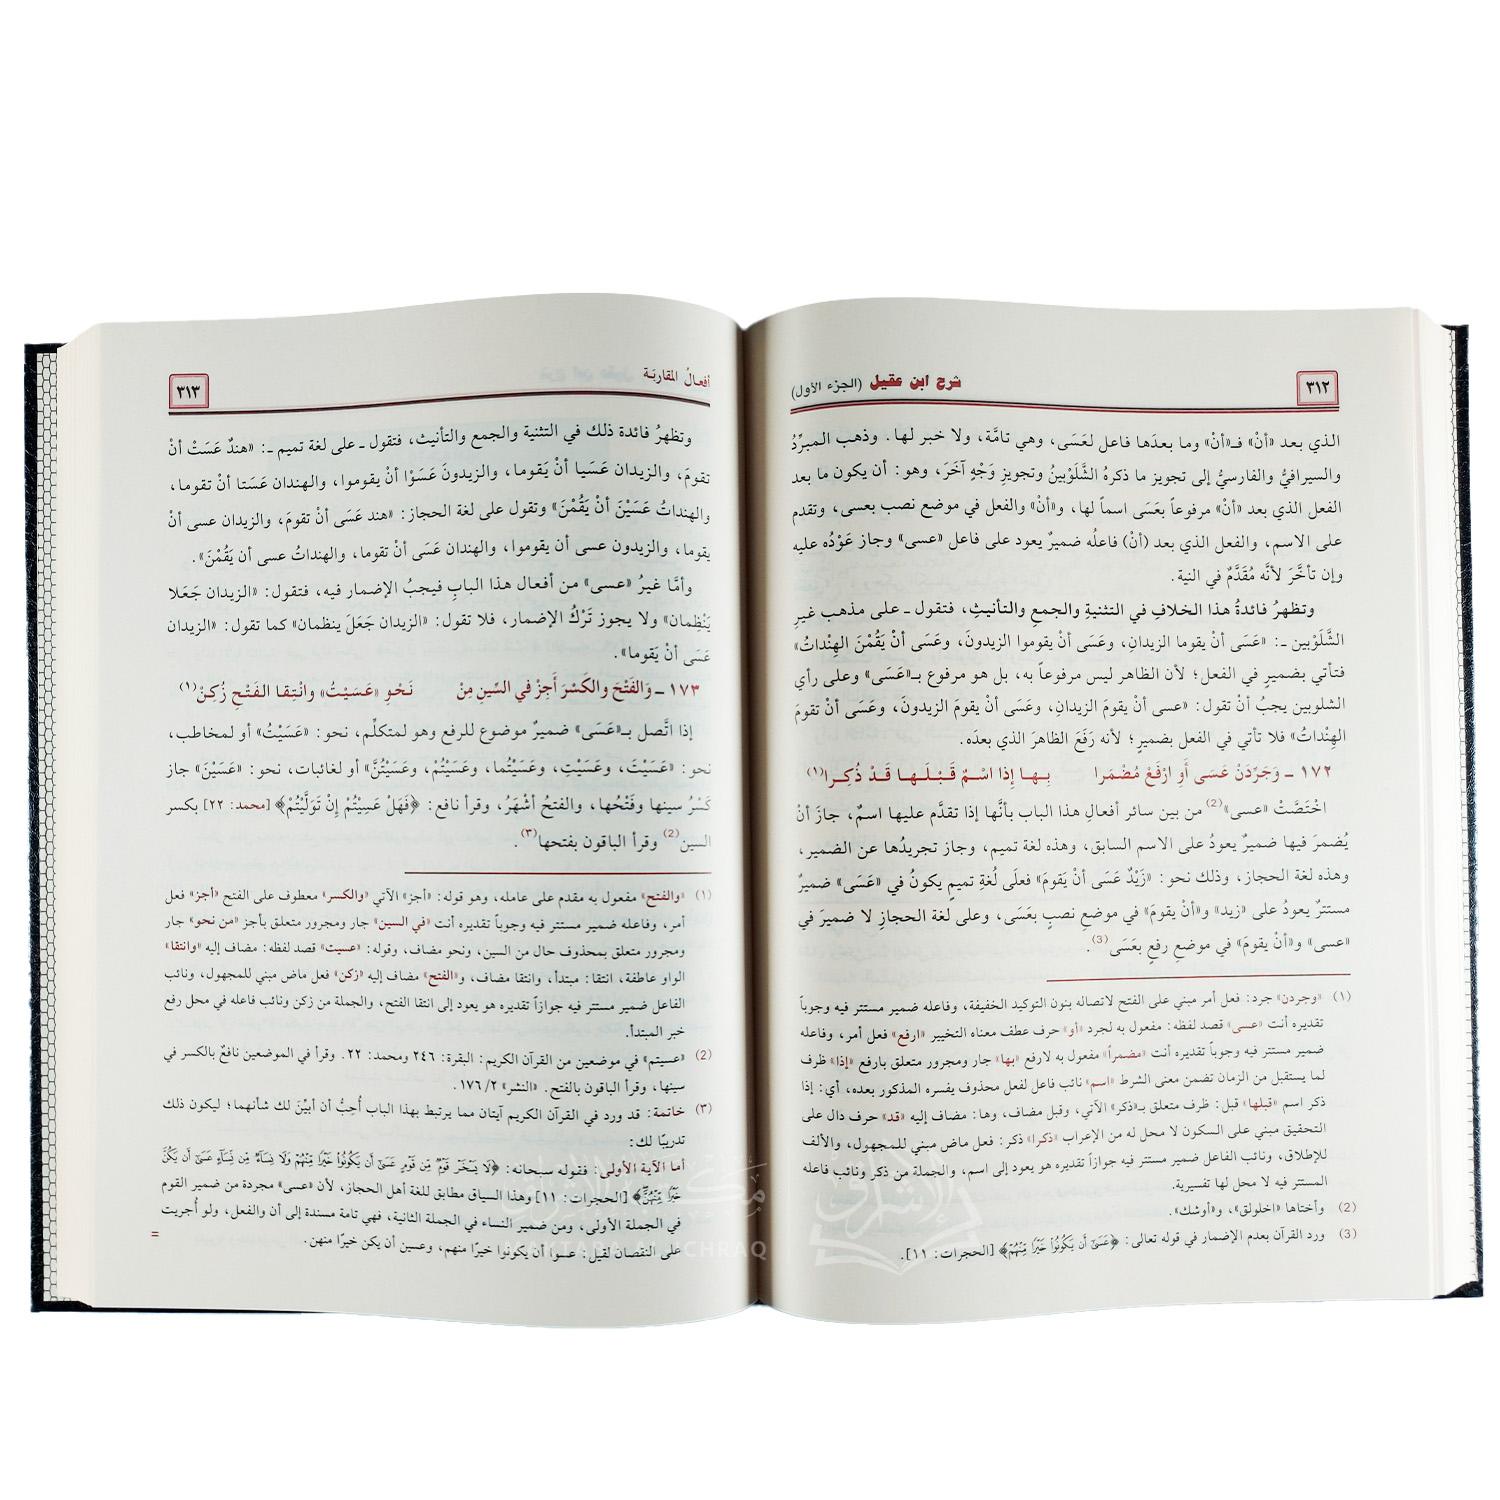 ٣١٢
شرح ابن عقيل (الجزء الأول)
الذي بعد «أنْ» فـ«أنْ» وما بعدَها فاعل لعَسَى، وهي تامَّة، ولا خبر لها. وذهب المبرِّدُ
والسيرافيُّ والفارسيُّ إلى تجويز ما ذكرهُ الشَّلَوْبينُ وتجويزِ وَجْهٍ آخَرَ، وهو: أن يكون ما بعد
الفعل الذي بعد «أنْ» مرفوعاً بعَسَى اسماً لها، و«أنْ» والفعل في موضع نصب بعسى، وتقدم
على الاسم، والفعل الذي بعد (أنْ) فاعلُه ضميرٌ يعود على فاعل «عسى» وجاز عَوْدُه عليه
وإن تأخَّرَ لأنَّه مُقَدَّمٌ في النية.
وتظهرُ فائدةُ هذا الخلافِ في التثنيةِ والجمعِ والتأنيثِ، فتقول ـ على مذهب غيرِ
الشَّلَوْبين ـ: «عَسَى أنْ يقوما الزيدانِ، وعَسَى أنْ يقوموا الزيدونَ، وعَسَى أنْ يَقُمْنَ الهِنْداتُ»
فتأتي بضميرٍ في الفعل؛ لأن الظاهر ليس مرفوعاً به، بل هو مرفوع بـ«عَسَى» وعلى رأي
الشلوبين يجبُ أنْ تقول: «عسى أنْ يقومَ الزيدانِ، وعَسَى أنْ يقومَ الزيدونَ، وعَسَى أنْ تقومَ
الهِنْداتُ» فلا تأتي في الفعل بضميرٍ؛ لأنه رَفَعَ الظاهرَ الذي بعدَه.
١٧٢ ـ وَجَرِّدَنْ عَسَى أَوِ ارْفَعْ مُضْمَرا بِهـا إذَا اسْـمٌ قَـبْـلَـهـا قَـدْ ذُكِـرا(١)
اخْتَصَّتْ «عسى»(2) من بين سائر أفعال هذا الباب بأنَّها إذا تقدَّم عليها اسمٌ، جازَ أنْ
يُضمرَ فيها ضميرٌ يعودُ على الاسم السابق، وهذه لغة تميم، وجاز تجريدُها عن الضمير،
وهذه لغة الحجاز، وذلك نحو: «زَيْدٌ عَسَى أنْ يَقومَ» فعلَى لُغةِ تميمٍ يكونُ في «عَسَى» ضميرٌ
مستترٌ يعودُ على «زيد» و«أنْ يقومَ» في موضعِ نصبٍ بعَسَى، وعلى لغة الحجازِ لا ضميرَ في
«عسى» و«أنْ يقومَ» في موضعِ رفعٍ بعَسَى (3).
(١) «وجردن» جرد: فعل أمر مبني على الفتح لاتصاله بنون التوكيد الخفيفة، وفاعله ضمير مستتر فيه وجوباً
تقديره أنت «عسى» قصد لفظه: مفعول به لجرد «أو» حرف عطف معناه التخيير «ارفع» فعل أمر، وفاعله
ضمير مستتر فيه وجوباً تقديره أنت «مضمراً» مفعول به لارفع «بها» جار ومجرور متعلق بارفع «إذا» ظرف
لما يستقبل من الزمان تضمن معنى الشرط «اسم» نائب فاعل لفعل محذوف يفسره المذكور بعده، أي: إذا
ذكر اسم «قبلها» قبل: ظرف متعلق بـ«ذكر» الآتي، وقبل مضاف، وها: مضاف إليه «قد» حرف دال على
التحقيق مبني على السكون لا محل له من الإعراب «ذكرا» ذكر: فعل ماض مبني للمجهول، والألف
للإطلاق، ونائب الفاعل ضمير مستتر فيه جوازاً تقديره هو يعود إلى اسم، والجملة من ذكر ونائب فاعله
المستتر فيه لا محل لها تفسيرية.
(2) وأختاها «اخلولق»، و«أوشك».
(3) ورد القرآن بعدم الإضمار في قوله تعالى: ﴿عَسَىٰٓ أَن يَكُونُوا۟ خَيْرًا مِّنْهُمْ﴾ [الحجرات: ١١].
أفعالُ المقاربَة
٣١٣
وتظهرُ فائدة ذلك في التثنية والجمع والتأنيث، فتقول ـ على لغة تميم ـ: «هندٌ عسَتْ أنْ
تقومَ، والزيدان عَسَيا أنْ يَقوما، والزيدونَ عَسَوْا أنْ يقوموا، والهندان عَسَتا أنْ تقوما،
والهنداتُ عَسَيْنَ أنْ يَقُمْنَ» وتقول على لغة الحجاز: «هند عَسَى أنْ تقومَ، والزيدان عسى أنْ
يقوما، والزيدون عسى أن يقوموا، والهندان عَسَى أنْ تقوما، والهنداتُ عسى أن يَقُمْنَ».
وأمَّا غيرُ «عسى» من أفعال هذا البابِ فيجبُ الإضمار فيه، فتقول: «الزيدان جَعَلا
يَنْظِمان» ولا يجوز تَرْكُ الإضمار، فلا تقول: «الزيدان جَعَلَ ينظمان» كما تقول: «الزيدان
عَسَى أنْ يَقوما».
١٧٣ ـ وَالفَتْحَ والكَسْرَ أجِزْ في السِّينِ مِنْ نَحْوِ «عَسَيْتُ» وانْتِقا الفَتْحِ زُكِنْ(١)
إذا اتَّصل بـ«عَسَى» ضميرٌ موضوع للرفع وهو لمتكلِّم، نحو: «عَسَيْتُ» أو لمخاطب،
نحو: «عَسَيْتَ، وعَسَيْتِ، وعَسَيْتُما، وعَسَيْتُمْ، وعَسَيْتُنَّ» أو لغائبات، نحو: «عَسَيْنَ» جاز
كَسْرُ سينها وفَتْحُها، والفتحُ أشْهَرُ، وقرأ نافع: ﴿فَهَلْ عَسِيْتُمْ إِن تَوَلَّيْتُمْ﴾ [محمد: ٢٢] بكسر
السين(2) وقرأ الباقون بفتحها(٣).
(١) «والفتح» مفعول به مقدم على عامله، وهو قوله: «أجز» الآتي «والكسر» معطوف على الفتح «أجز» فعل
أمر، وفاعله ضمير مستتر فيه وجوباً تقديره أنت «في السين» جار ومجرور متعلق بأجز «من نحو» جار
ومجرور متعلق بمحذوف حال من السين، ونحو مضاف، وقوله: «عسيت» قصد لفظه: مضاف إليه «وانتقا»
الواو عاطفة، انتقا: مبتدأ، وانتقا مضاف، و«الفتح» مضاف إليه «زكن» فعل ماض مبني للمجهول، ونائب
الفاعل ضمير مستتر فيه جوازاً تقديره هو يعود إلى انتقا الفتح، والجملة من زكن ونائب فاعله في محل رفع
خبر المبتدأ.
(2) «عسيتم» في موضعين من القرآن الكريم: البقرة: ٢٤٦ ومحمد: ٢٢. وقرأ في الموضعين نافعٌ بالكسر في
سينها، وقرأ الباقون بالفتح. «النشر» ٢/ ١٧٦.
(٣) خاتمة: قد ورد في القرآن الكريم آيتان مما يرتبط بهذا الباب أُحِبُّ أن أبيِّنَ لك شأنهما؛ ليكون ذلك
تدريبًا لك:
أما الآية الأولى: فقوله سبحانه: ﴿لَا يَسْخَرْ قَوْمٌ مِّن قَوْمٍ عَسَىٰٓ أَن يَكُونُوا۟ خَيْرًا مِّنْهُمْ وَلَا نِسَآءٌ مِّن نِّسَآءٍ عَسَىٰٓ أَن يَكُنَّ
خَيْرًا مِّنْهُنَّ﴾ [الحجرات: ١١] وهذا السياق مطابق للغة أهل الحجاز، لأن «عسى» مجردة من ضمير القوم
في الجملة الأولى، ومن ضمير النساء في الجملة الثانية، فهي تامة مسندة إلى أن والفعل، ولو أُجريت
على النقصان لقيل: عسوا أن يكونوا خيرًا منهم، وعسين أن يكن خيرًا منهن. =